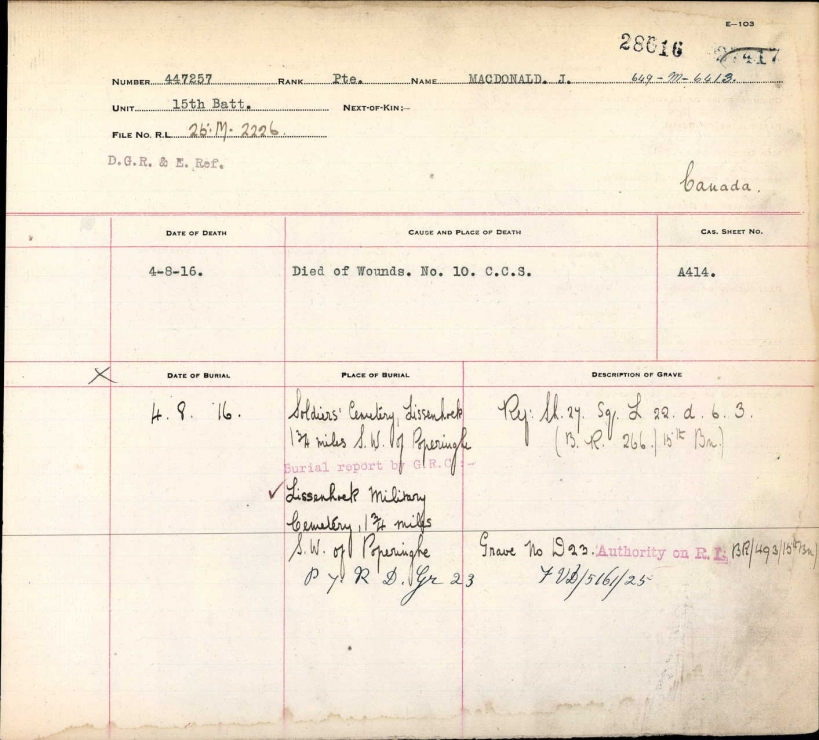 E—103
28016 27417
NUMBER 447257 RANK Pte. NAME MACDONALD. J. 649-M-6413.
UNIT 15th Batt. NEXT-OF-KIN:—
FILE NO. R.L. 25.M.2226.
D.G.R. & E. Ref.
Canada.
DATE OF DEATH CAUSE AND PLACE OF DEATH CAS. SHEET NO.
4-8-16. Died of Wounds. No. 10. C.C.S. A414.
X DATE OF BURIAL PLACE OF BURIAL DESCRIPTION OF GRAVE
4. 8. 16. Soldiers' Cemetery, Lissenhoek Ref: Sh. 27. Sq. L 22. d. 6. 3.
1¾ miles S.W. of Poperinghe (B.R. 266/15th Bn.)
Burial report by G.R.C.:-
✓ Lissenhoek Military
Cemetery, 1¾ miles
S.W. of Poperinghe Grave No D23. Authority on R.L. BR/493/15th Bn)
R D. Gr 23 /5161/25